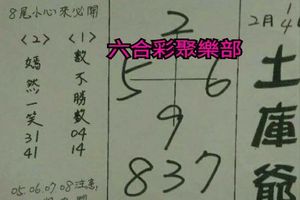 8尾小心來必開
<2>
嫣然一笑
31
41
<1>
數不勝數
04
14
05.06.07.08注意
六合彩聚樂部
2
5 6
9
837
2月1/4
土庫爺